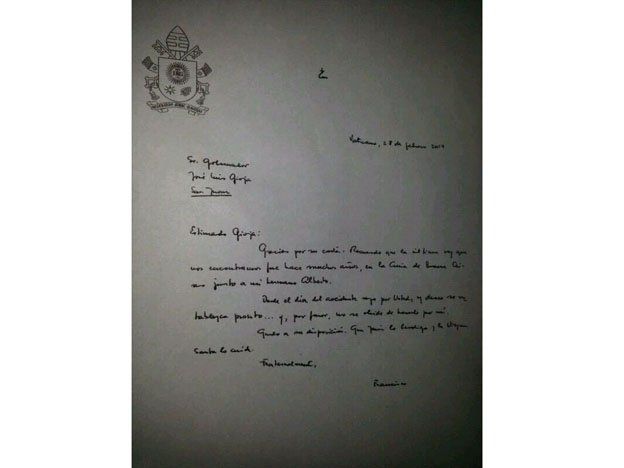 Vaticano, 28 de febrero 2014
Sr. Gobernador
José Luis Gioja
San Juan
Estimado Gioja:
Gracias por su carta. Recuerdo que la última vez que
nos encontramos fue hace muchos años, en la Curia de Buenos Ai-
res junto a mi hermano Alberto.
Desde el día del accidente rezo por Usted, y deseo se re-
tablezca pronto... y, por favor, no se olvide de hacerlo por mí.
Quedo a su disposición. Que Jesús lo bendiga y la Virgen
Santa lo cuide.
Fraternalmente,
Francisco